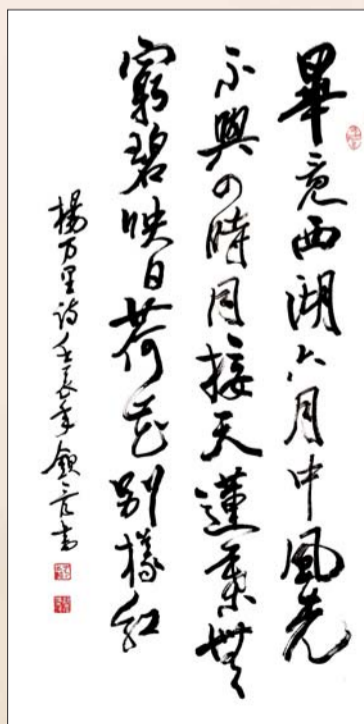 畢竟西湖六月中風光
不與四時同接天蓮葉無
窮碧映日荷花別樣紅
楊万里诗壬辰年书